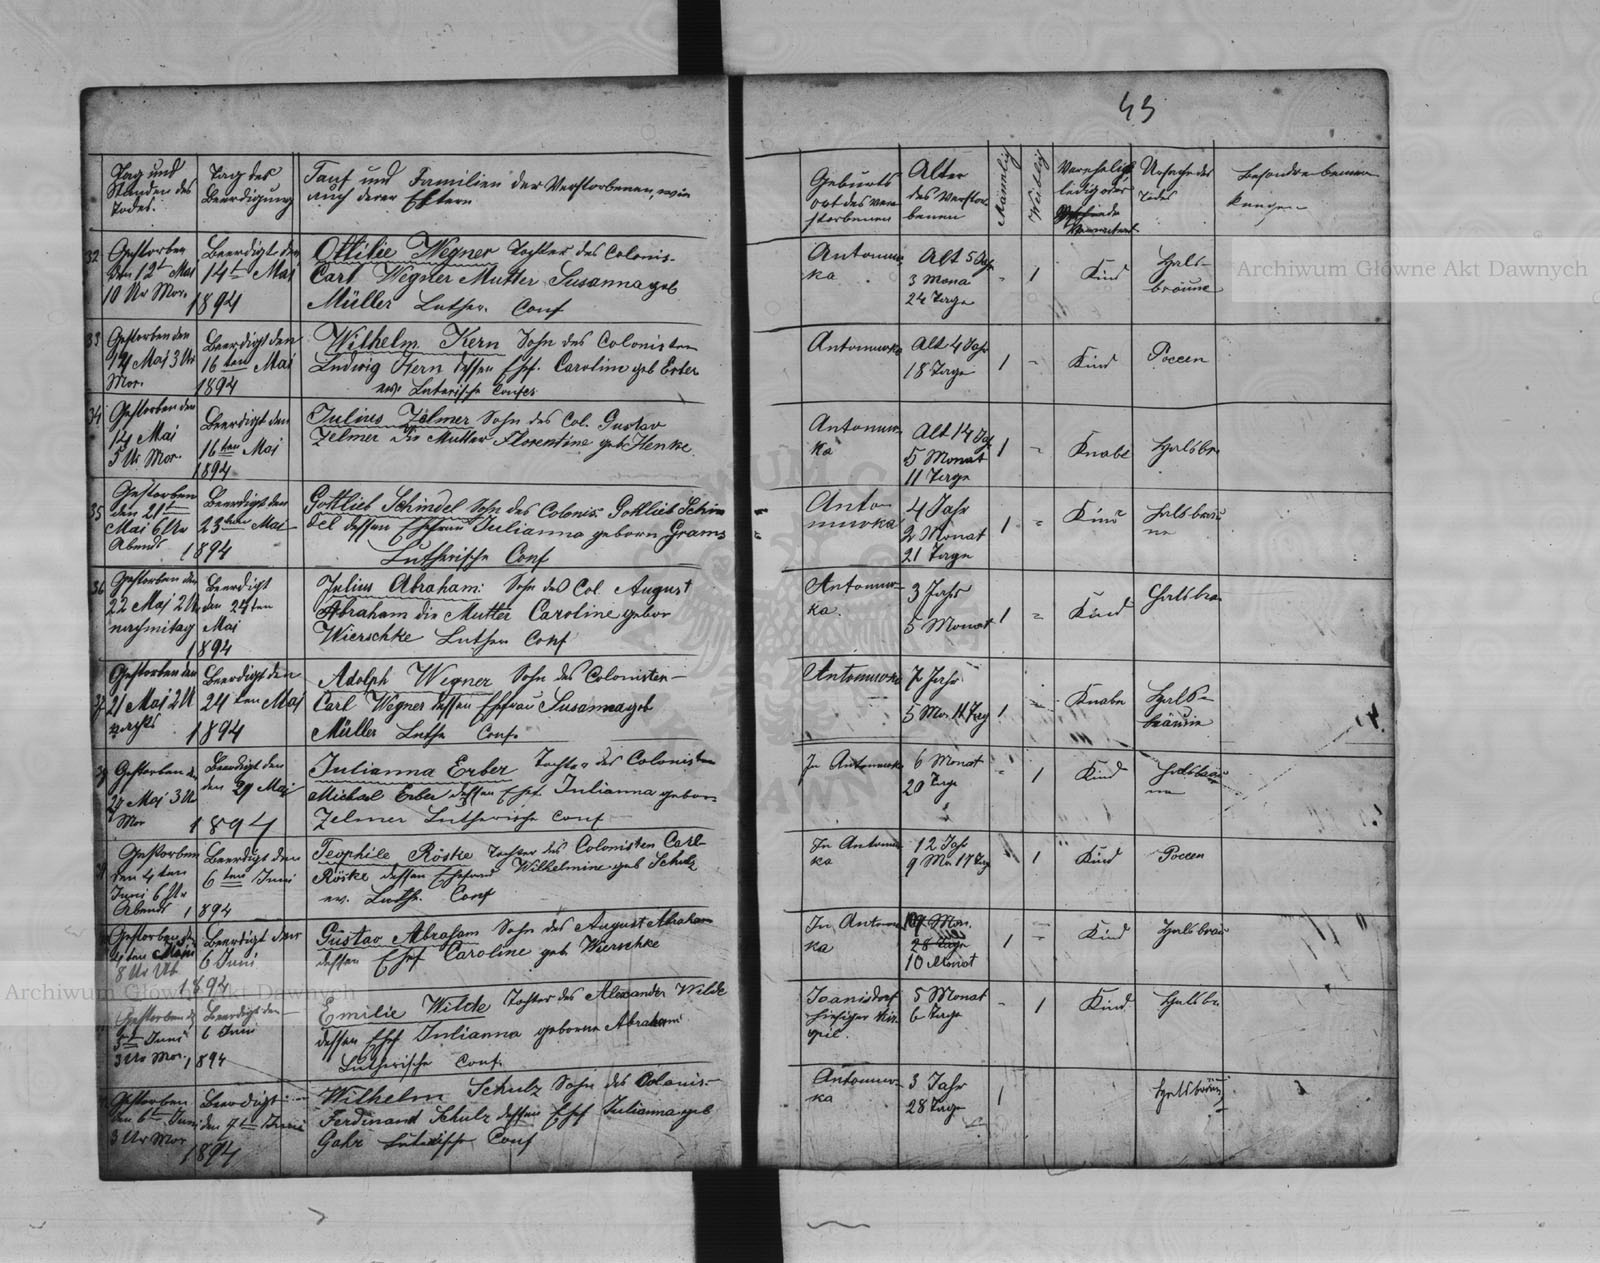 43
Tag und
Stunden des
Todes.
Tag des
Beerdigung
Tauf und Familien der Verstorbenen, wie
auch derer Eltern
Geburts
ort des ver
storbenen
Alter
des Verstor
benen
Mänlig
Weiblig
Verehelig
ledig oder
Ursache des
Todes
Besondre bemer
kungen
32
Gestorben
den 12t Mai
10 Ur Mor.
Beerdigt den
14ten Mai
1894
Ottilie Wegner Tochter des Colonis-
Carl Wegner Mutter Susanna geb
Müller Luther. Conf
Antonuw
ka
Alt 5 Jahr
3 Mona
24 Tage
1
Kind
Hals-
bräune
33
Gestorben den
14 Mai 3 Ur
Mor.
Beerdigt den
16ten Mai
1894
Wilhelm Kern Sohn des Colonisten
Ludwig Kern dessen Ehf. Caroline geb Erber
ev. Luterische Confes
Antonuwka
Alt 4 Jahr
18 Tage
1
Kind
Poccen
34
Gestorben den
14 Mai
5 Ur Mor.
Beerdigt den
16ten Mai
1894
Julius Zelmer Sohn des Col. Gustav
Zelmer die Mutter Florentine geb Henke.
Antonuw-
ka
Alt 14 Ja
5 Monat
11 Tage
1
Knabe
Halsbrä
35
Gestorben
den 21t
Mai 6 Ur
Abends
Beerdigt den
23ten Mai
1894
Gottlieb Schindel Sohn des Colonis Gottlieb Schin
del dessen Ehefrau Julianna geborn Grams
Lutherische Conf
Anto-
nuwka
4 Jahr
2 Monat
21 Tage
1
Kind
Halsbräu
ne
36
Gestorben den
22 Mai 2 Ur
nachmitag
Beerdigt
den 24ten
Mai
1894
Julius Abraham: Sohn des Col August
Abraham die Mutter Caroline gebor
Wierschke Luther Conf
Antonuw-
ka.
3 Jahr
5 Monat
1
Kind
Halsbrä
37
Gestorben den
21 Mai 2 U
Beerdigt den
24ten Mai
1894
Adolph Wegner Sohn des Colonisten-
Carl Wegner dessen Ehefrau Susanna geb
Müller Luthe Conf.
Antonuwka
7 Jahr
5 Mo. 11 Tag
1
Knabe
Hals-
bräune
Gestorben d.
29 Mai 3 Ur
Mor
Beerdigt den
den 29 Mai
1894
Julianna Erber Tochter des Colonisten
Michael Erber dessen Ehef. Julianna gebor-
Zelmer Lutherische Conf
In Antonuwka
6 Monat
20 Tage
1
Kind
Halsbräu
ne
Gestorben
den 4ten
Juni 6 Ur
Abends
Beerdigt den
6ten Juni
1894
Teophile Röske Tochter des Colonisten Carl
Röske dessen Ehefrau Wilhelmine geb Schulz
ev. Luthe. Conf
In Antonuw
ka
12 Jahr
9 Mo 17 Tag
1
Kind
Poccen
Gestorben d.
4ten
8 Ur
Beerdigt den
6 Juni
1894
Gustav Abraham Sohn des August Abraham
dessen Ehef Caroline geb Wierschke
In Antonuw
ka
28 Tage
10 Monat
1
Kind
Halsbräu
Gestorben d
5t Juni
3 Ur Mor.
Beerdigt den
6 Juni
1894
Emilie Wilde Tochter des Alexander Wilde
dessen Ehef Julianna geborne Abraham
Lutherische Conf.
Joanisdorf
hiesiger Kir
spil.
5 Monat
6 Tage
1
Kind
Halsbr
Gestorben
den 6t Juni
3 Ur Mor
Beerdigt
den 7ten Juni
1894
Wilhelm Schulz Sohn des Colonis-
Ferdinand Schulz dessen Ehef Julianna geb
Gahr Luterische Conf
Antonuw-
ka
3 Jahr
28 Tage
1
Halsbräu
Archiwum Główne Akt Dawnych
Archiwum Główne Akt Dawnych